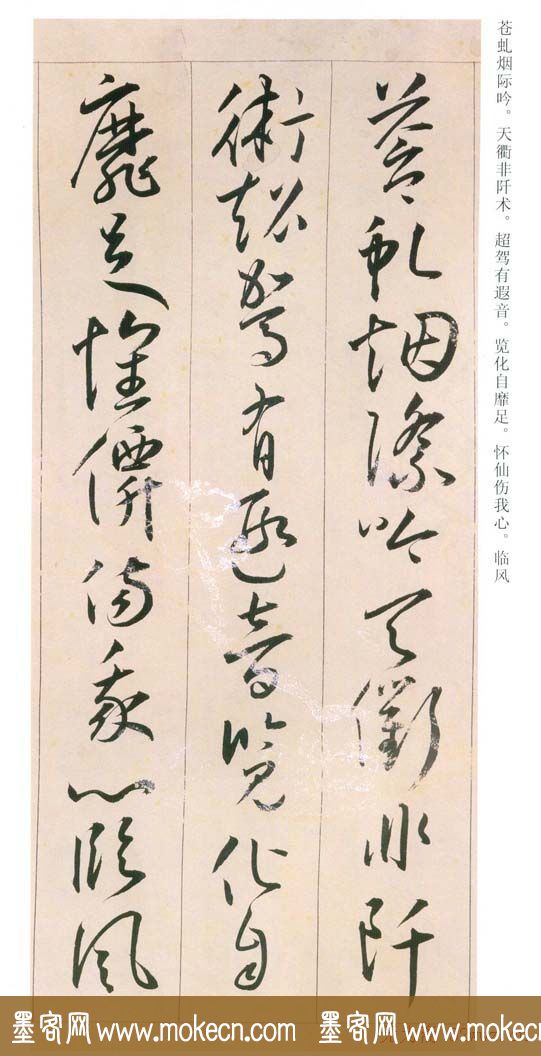 苍虬烟际吟。天衢非阡术。超驾有遐音。览化自靡足。怀仙伤我心。临风
蒼虬烟際吟天衢非阡
術超駕有遐音覽化自
靡足懷僊傷我心臨風
墨客网 www.mokecn.com 墨客网 www.mokecn.com